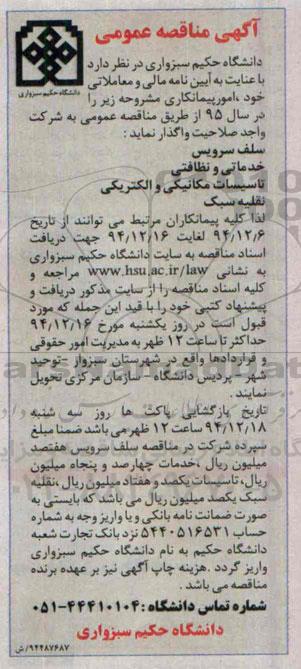 آگهی مناقصه عمومی
دانشگاه حکیم سبزواری
دانشگاه حکیم سبزواری در نظر دارد
با عنایت به آیین نامه مالی و معاملاتی
خود ،امورپیمانکاری مشروحه زیر را
در سال ۹۵ از طریق مناقصه عمومی به شرکت
واجد صلاحیت واگذار نماید :
سلف سرویس
خدماتی و نظافتی
تاسیسات مکانیکی و الکتریکی
نقلیه سبک
لذا کلیه پیمانکاران مرتبط می توانند از تاریخ
۹۴/۱۲/۶ لغایت ۹۴/۱۲/۱۶ جهت دریافت
اسناد مناقصه به سایت دانشگاه حکیم سبزواری
به نشانی www.hsu.ac.ir/law مراجعه و
کلیه اسناد مناقصه را از سایت مذکور دریافت و
پیشنهاد کتبی خود را با قید این جمله که مورد
قبول است در روز یکشنبه مورخ ۹۴/۱۲/۱۶
حداکثر تا ساعت ۱۲ ظهر به مدیریت امور حقوقی
و قراردادها واقع در شهرستان سبزوار –توحید
شهر – پردیس دانشگاه – سازمان مرکزی تحویل
نمایند .
تاریخ بازگشایی پاکت ها روز سه شنبه
۹۴/۱۲/۱۸ ساعت ۱۲ ظهر می باشد ضمنا مبلغ
سپرده شرکت در مناقصه سلف سرویس هفتصد
میلیون ریال ،خدمات چهارصد و پنجاه میلیون
ریال، تاسیسات یکصد و هفتاد میلیون ریال ،نقلیه
سبک یکصد میلیون ریال می باشد که بایستی به
صورت ضمانت نامه بانکی و یا واریز وجه به شماره
حساب ۵۴۴۰۵۱۶۵۳۱ نزد بانک تجارت شعبه
دانشگاه حکیم به نام دانشگاه حکیم سبزواری
واریز گردد .هزینه چاپ آگهی نیز بر عهده برنده
مناقصه می باشد .
شماره تماس دانشگاه : ۴۴۴۱۰۱۰۴-۰۵۱
دانشگاه حکیم سبزواری
۹۴۴۸۷۶۸۷/ش